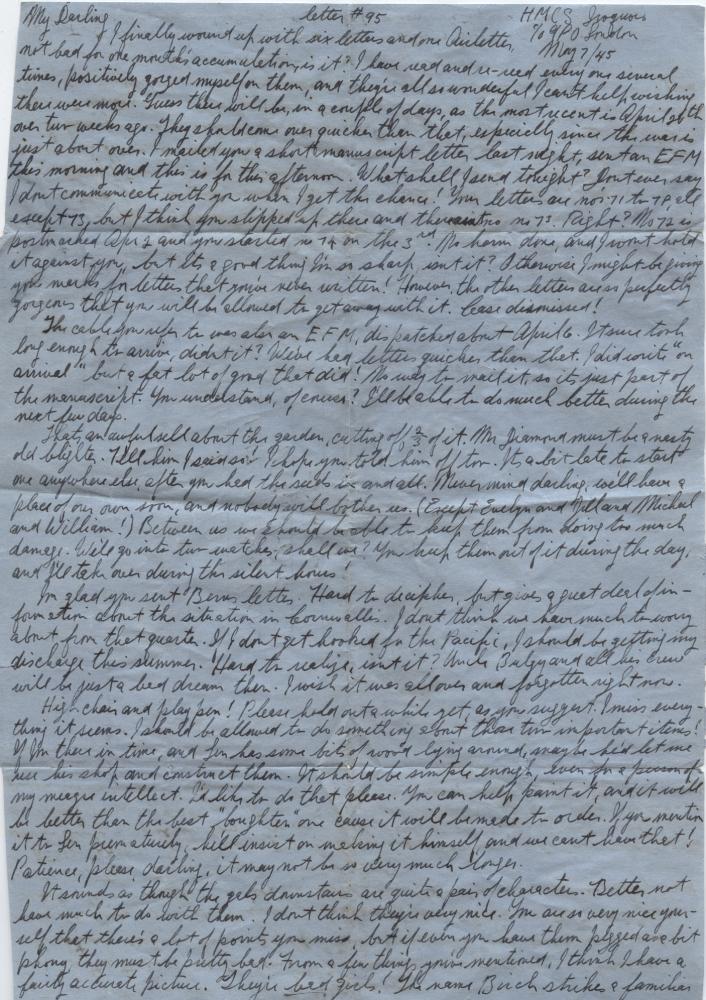 My Darling letter #95 H.M.C.S. Iroquois
℅ GPO London
May 7/45
I finally wound up with six letters and one Airletter,
not bad for one month's accumulation, is it? I have read and re-read every one several
times, positively gorged myself on them, and they're all so wonderful I can't help wishing
there were more. Guess there will be, in a couple of days, as the most recent is April 20th
over two weeks ago. They should come over quicker than that, especially since the war is
just about over. I mailed you a short manuscript letter last night, sent an EFM
this morning and this is for this afternoon. What shall I send tonight? Don't ever say
I don't communicate with you when I get the chance! Your letters are nos 71 to 78, all
except 73, but I think you slipped up there and there was no no 73. Right? No 72 is
postmarked Apr 2 and you started no 74 on the 3rd. No harm done, and I won't hold
it against you, but its a good thing I'm so sharp, isn't it? Otherwise I might be giving
you marks for letters that you've never written! However the other letters are so perfectly
gorgeous that you will be allowed to get away with it. Case dismissed!
The cable you refer to was also an EFM, dispatched about April 6. It sure took
long enough to arrive, didn't it? We've had letters quicker than that. I did write "on
arrival" but a fat lot of good that did! No way to mail it, so its just part of
the manuscript. You understand, of course? I'll be able to do much better during the
next few days.
That's an awful sell about the garden, cutting off 2/3 of it. Mr Diamond must be a nasty
old blighter. Tell him I said so! I hope you told him off too. It's a bit late to start
one anywhere else, after you had the seeds in and all. Never mind darling, we'll have a
place of our own soon, and nobody will bother us. (Except Evelyn and Jill and Michael
and William!) Between us we should be able to keep them from doing too much
damage. We'll go into two watches, shall we? You keep them out of it during the day,
and I'll take over during the silent hours!
I'm glad you sent Bern's letter. Hard to decipher, but gives a great deal of in-
formation about the situation in Cornwallis. I don't think we have much to worry
about from that quarter. If I don't get hooked for the Pacific, I should be getting my
discharge this summer. Hard to realize, isn't it? Uncle and all his crew
will be just a bad dream then. I wish it was all over and forgotten right now.
High chair and play pen! Please hold out a while yet, as you suggest. I miss every-
thing it seems. I should be allowed to do something about those two important items!
If I'm there in time, and Len has some bits of wood lying around, maybe he'd let me
use his shop and construct them. It should be simple enough, even for a person of
my meagre intellect. I'd like to do that please. You can help paint it, and it will
be better than the best "boughten" one cause it will be made to order. If you mention
it to Len prematurely, he'll insist on making it himself, and we can't have that!
Patience, please, darling, it may not be so very much longer.
It sounds as though the gals downstairs are quite a pair of characters. Better not
have much to do with them. I don't think they're very nice. You are so very nice your-
self that there's a lot of points you miss, but if even you have them pegged as a bit
phony they must be pretty bad. From a few things you've mentioned, I think I have a
fairly accurate picture. They're bad girls! The name Birch strikes a familiar